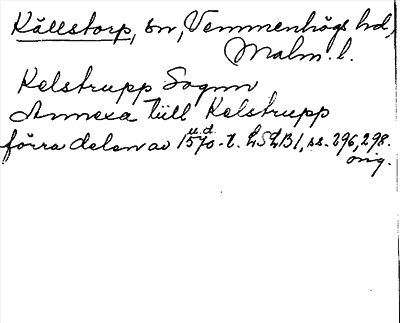 Källstorp, sn, Vemmenhögs hd,
Malm. l.
Kelstrupp Sognn
Annexa till Kelstrupp
u.d.
förra delen av 1570-t. LSLB1, ss. 296, 298.
orig.